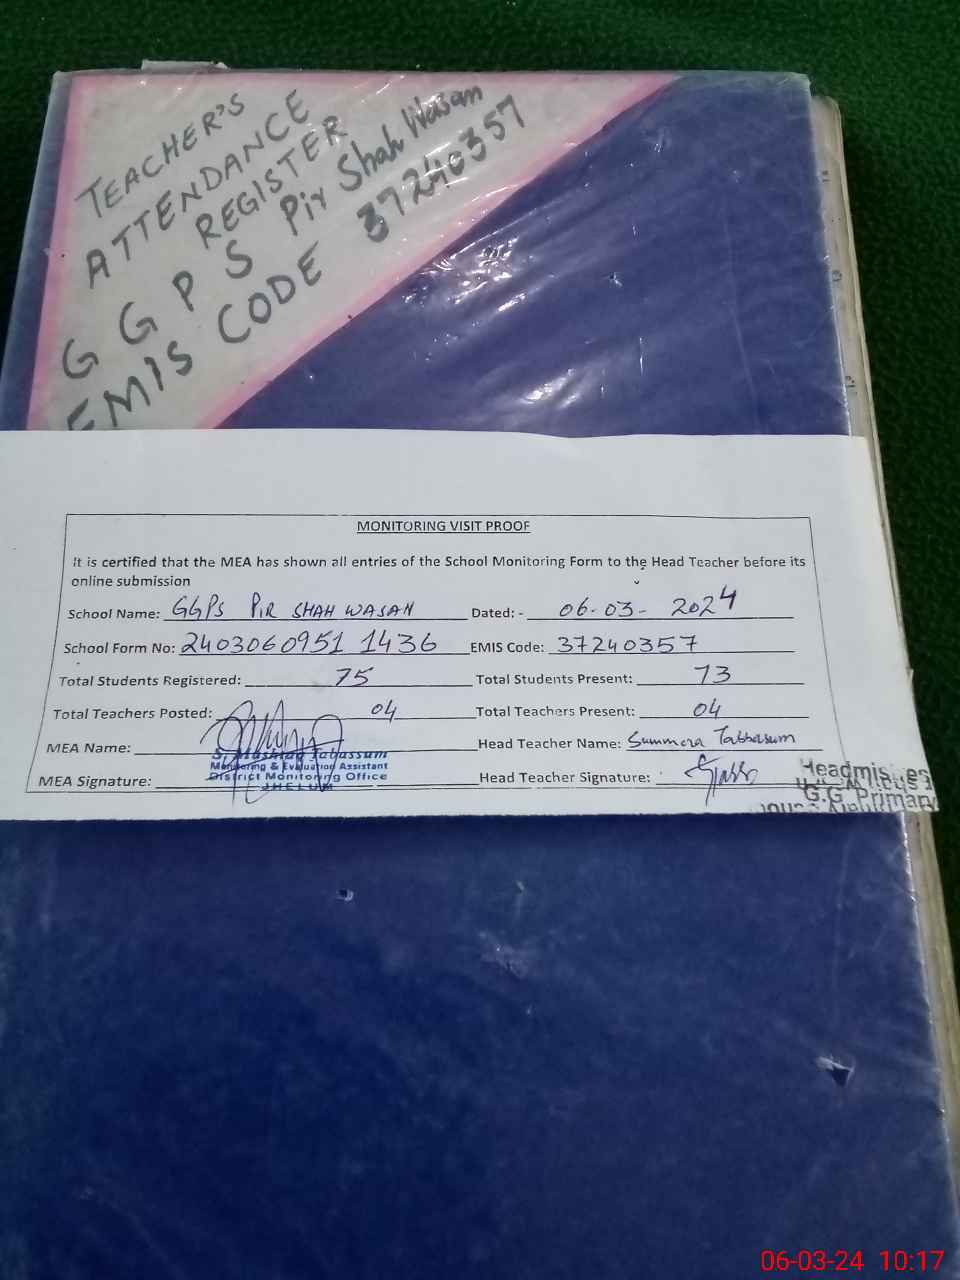 TEACHER'S
ATTENDANCE
REGISTER
G G P S Pir Shah Wasan
EMIS CODE 37240357
MONITORING VISIT PROOF
It is certified that the MEA has shown all entries of the School Monitoring Form to the Head Teacher before its
online submission
School Name: GGPS PIR SHAH WASAN Dated: - 06-03-2024
School Form No: 2403060951 1436 EMIS Code: 37240357
Total Students Registered: 75 Total Students Present: 73
Total Teachers Posted: 04 Total Teachers Present: 04
MEA Name: Head Teacher Name: Summera Tabbasum
S. Mushtaq Tabassum
Monitoring & Evaluation Assistant
District Monitoring Office
JHELUM
MEA Signature: Head Teacher Signature:
Headmistress
G.G. Primary
06-03-24 10:17